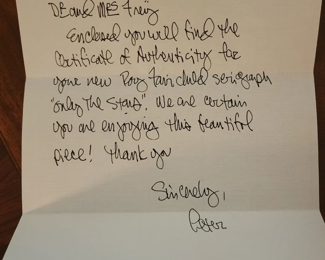 DR and Mrs Freiz
Enclosed you will find the
Certificate of Authenticity for
your new Roy Fairchild serigraph
"only The Stars". We are certain
you are enjoying this beautiful
piece! Thank you
Sincerely,
Peter